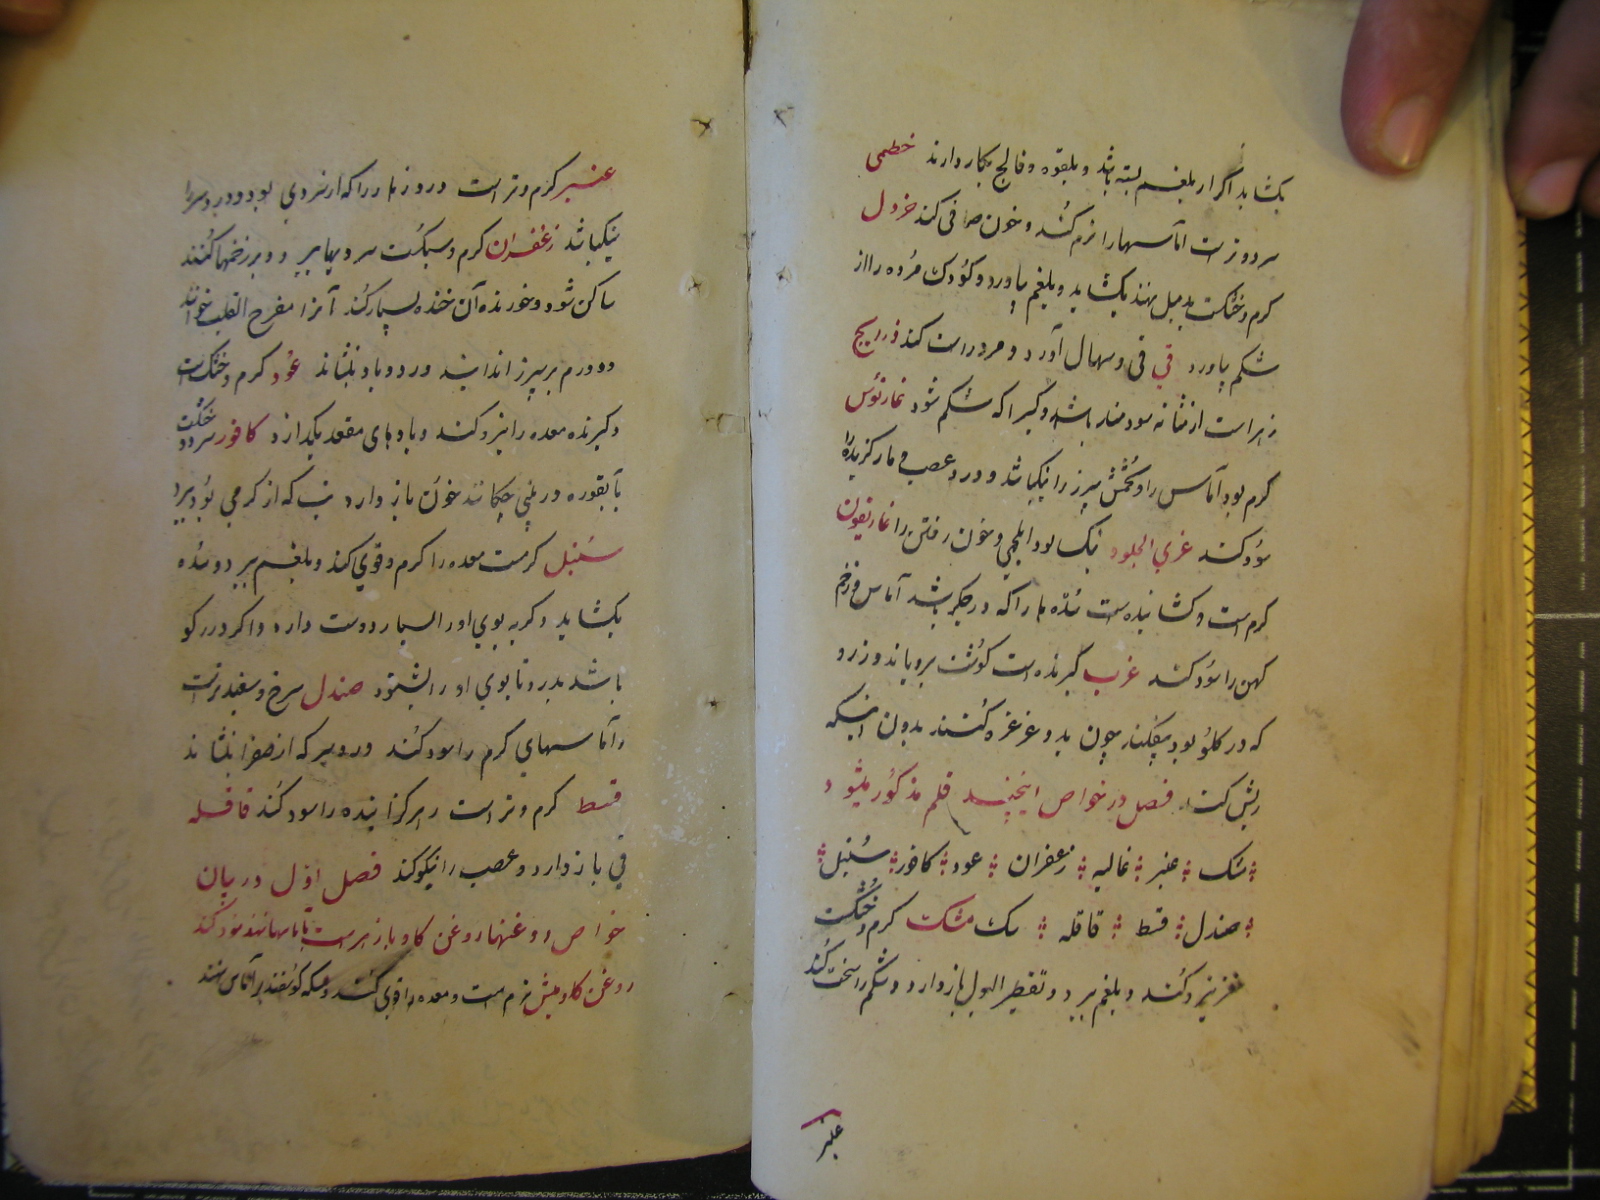 بکشاید اگر از بلغم بسته باشد و بلقوه و فالج بکار دارند خطمی
سرد و تر است اماسها را نرم کند و خون صافی کند خردل
کرم و خشکست بدمبل نهند بکشاید و بلغم بیاورد و کودک مرده را از
شکم بیاورد قی قی و سهال آورد و مردرا ست کند ذراریج
زهر است از مثانه سودمند باشد و کبر اکه شکم شود
کرم بود آماس را و سپرز را نیکباشد و درد عصب و مار کزیده را
سود کند غری الجلود نیک بود و خون رفتن را غاریقون
کرم است و کشاینده است سده ها را که در جکر باشد آماس و زخم
کهن را سود کند غرب کیرنده است کوشت برویاند و زرو
که در کلو بود بیفکند چون بدو غرغره کنند بدون اینکه
ریش کند فصل در خواص اینچند قلم مذکور میشود
مشک عنبر غالیه زعفران عود کافور سنبل
صندل قسط قاقله سک مشک کرم و خشکست
مغز نیرو کند و بلغم ببرد و تقطیر البول باز دارد و شکم را سخت کند
عنبر
عنبر کرم و تر است و روزها را که از سردی بود و درد سر را
نیکباشد زعفران کرم و سبکست سردیها ببرد و بر زخمها کنند
ساکن شود و خورنده آن خنده بسیار کند آنرا مفرح القلب خوانند
و ورم بر سپرز اندایند درد و باد بنشاند عود کرم و خشک است
و کیرنده معده را نیرو کند و بادهای مقعد بکدازد کافور سرد و خشکست
با بقوره در بینی چکانند خون باز دارد تب که از کرمی بود ببرد
سنبل کرمست معده را کرم و قوی کند و بلغم ببرد و سده
بکشاید و کربه بوی او را بسیار دوست دارد و اکر در کو
باشد بدرد تا بوی او را بشنود صندل سرخ و سفید تر است
و آماسهای کرم را سود کند و درد سر که از صفرا بنشاند
قسط کرم و تر است زهر کزاینده را سود کند قاقله
قی باز دارد و عصب را نیکو کند فصل اول در بیان
خواص روغنها روغن کاو با زهر است با ماسها نهند سود کند
روغن کاومیش نرم است و معده را قوی کند و مسکه کوسفند بر آماس نهند